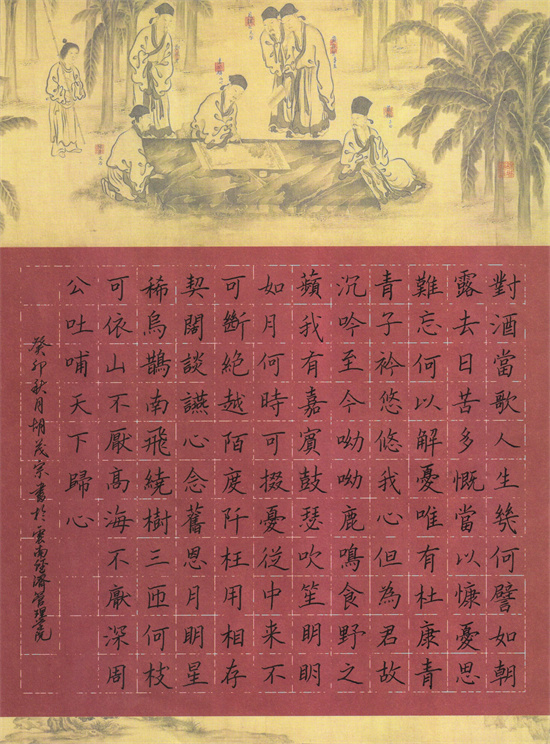 對酒當歌人生幾何譬如朝
露去日苦多慨當以慷憂思
難忘何以解憂唯有杜康青
青子衿悠悠我心但為君故
沉吟至今呦呦鹿鳴食野之
蘋我有嘉賓鼓瑟吹笙明明
如月何時可掇憂従中来不
可斷絕越陌度阡枉用相存
契闊談讌心念舊恩月明星
稀烏鵲南飛繞樹三匝何枝
可依山不厭高海不厭深周
公吐哺天下歸心
癸卯秋月胡茂宗書於雲南經濟管理學院